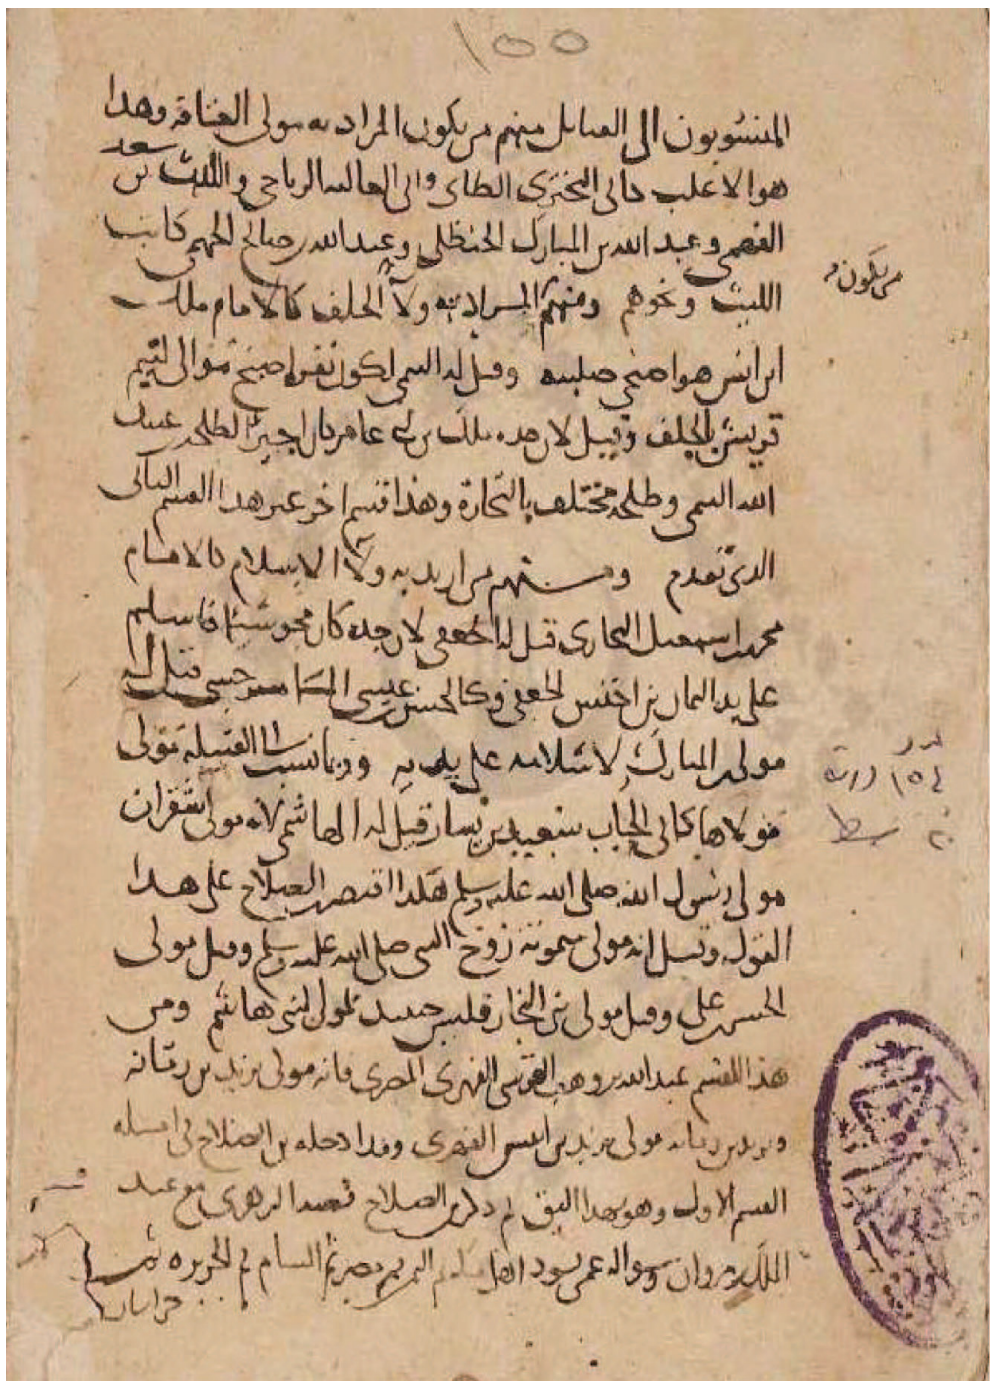 ١٥٥
المنسوبون الى القبائل منهم من يكون المراد به مولى العتاقة وهذا
هو الاغلب كابى البخترى الطاى وابى العاليه الرياحى والليث بن سعد
الفهمى وعبد الله بن المبارك الحنظلى وعبد الله بن صالح الجهنى كاتب
الليث ونحوهم ومنهم المراد به ولآ الحلف كالامام ملك
من يكون
ابن انس هو اصبحى صليبه وقيل له التيمى لكون نفره اصبح موالى لتيم
قريش بالحلف وقيل لان جده ملك بن ابى عامر كان اجيرا لطلحه بن عبيد
الله التيمى وطلحه مختلف بالتجارة وهذا قسم اخر غير هذا القسم الثانى
الذى تقدم ومنهم من اريد به ولآ الاسلام كالامام
محمد بن اسمعيل البخارى قيل له الجعفى لان جده كان مجوسيا فاسلم
على يد اليمان بن اخنس الجعفى وكالحسن بن عيسى الماسرجسى قيل له
مولى بن المبارك لاسلامه على يديه وربما نسب الى القبيلة مولى
مولاها كابى الحباب سعيد بن يسار قيل له الهاشمى لانه مولى شقران
مولى رسول الله صلى الله عليه وسلم هكذا اقتصر بن الصلاح على هذا
القول وقيل انه مولى ميمونة زوج النبى صلى الله عليه وسلم وقيل مولى
الحسن بن على وقيل مولى بنى النجار فليس حينئذ بمولى لبنى هاشم ومن
هذا القسم عبد الله بن وهب القرشى الفهرى المصرى فانه مولى يزيد بن رمانه
ويزيد بن رمانه مولى يزيد بن انيس الفهرى وقد ادخله بن الصلاح فى امثله
القسم الاول وهو بهذا اليق ثم ذكر بن الصلاح قصه الزهرى مع عبد
الملك بن مروان وسواله عمن يسود اهل مكه ثم اليمن ثم مصر ثم الشام ثم الجزيره ثم
خراسان